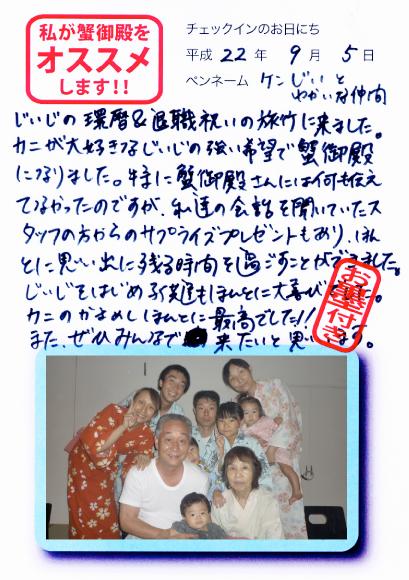 私が蟹御殿を
オススメ
します!!
チェックインのお日にち
平成 22 年 9 月 5 日
ペンネーム ケンじいと
ゆかいな仲間
じいじの還暦&退職祝いの旅行に来ました。
カニが大好きなじいじの強い希望で蟹御殿
になりました。特に蟹御殿さんには何も伝え
てなかったのですが、私達の会話を聞いていたス
タッフの方からのサプライズプレゼントもあり、ほん
とに思い出に残る時間を過ごすことができました。
じいじをはじめ子供達もほんとに大喜びでした。
カニのかまめしほんとに最高でした!!
また、ぜひみんなで来たいと思います。
お墨付き